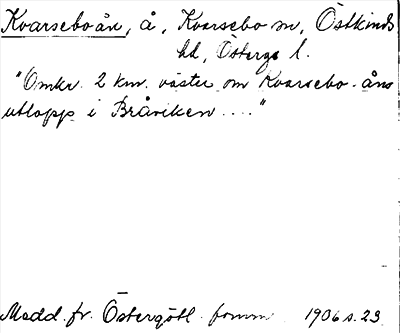 Kvarseboån, å, Kvarsebo sn, Östkinds
hd, Östergö l.
"Omkr. 2 km. väster om Kvarsebo-åns
utlopp i Bråviken ...."
Medd. fr. Östergötl. fornm. 1906 s. 23